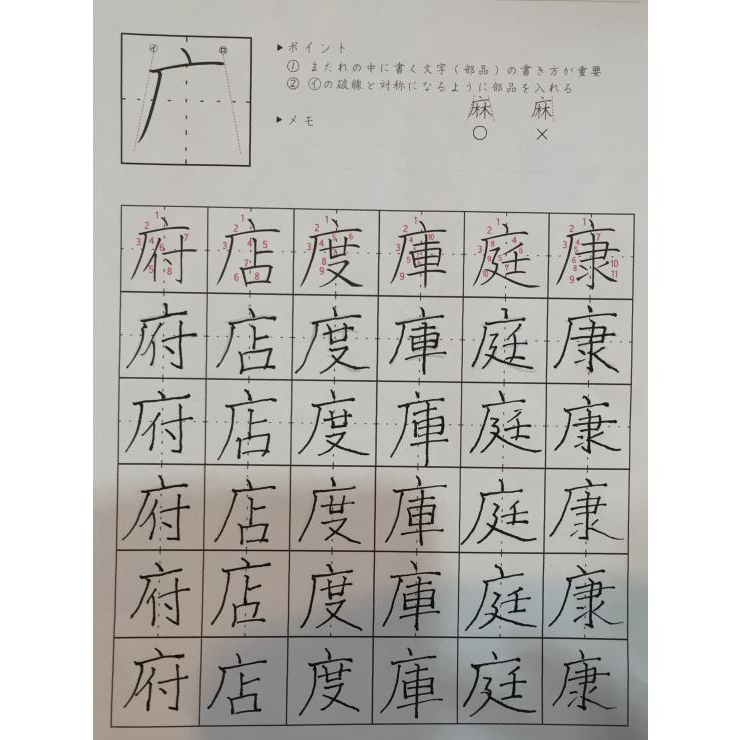 ㋑ ㋺
广
▶ポイント
① まだれの中に書く文字(部品)の書き方が重要
② ㋑の破線と対称になるように部品を入れる
▶メモ
麻 麻
○ ×
府 店 度 庫 庭 康
府 店 度 庫 庭 康
府 店 度 庫 庭 康
府 店 度 庫 庭 康
府 店 度 庫 庭 康
府 店 度 庫 庭 康